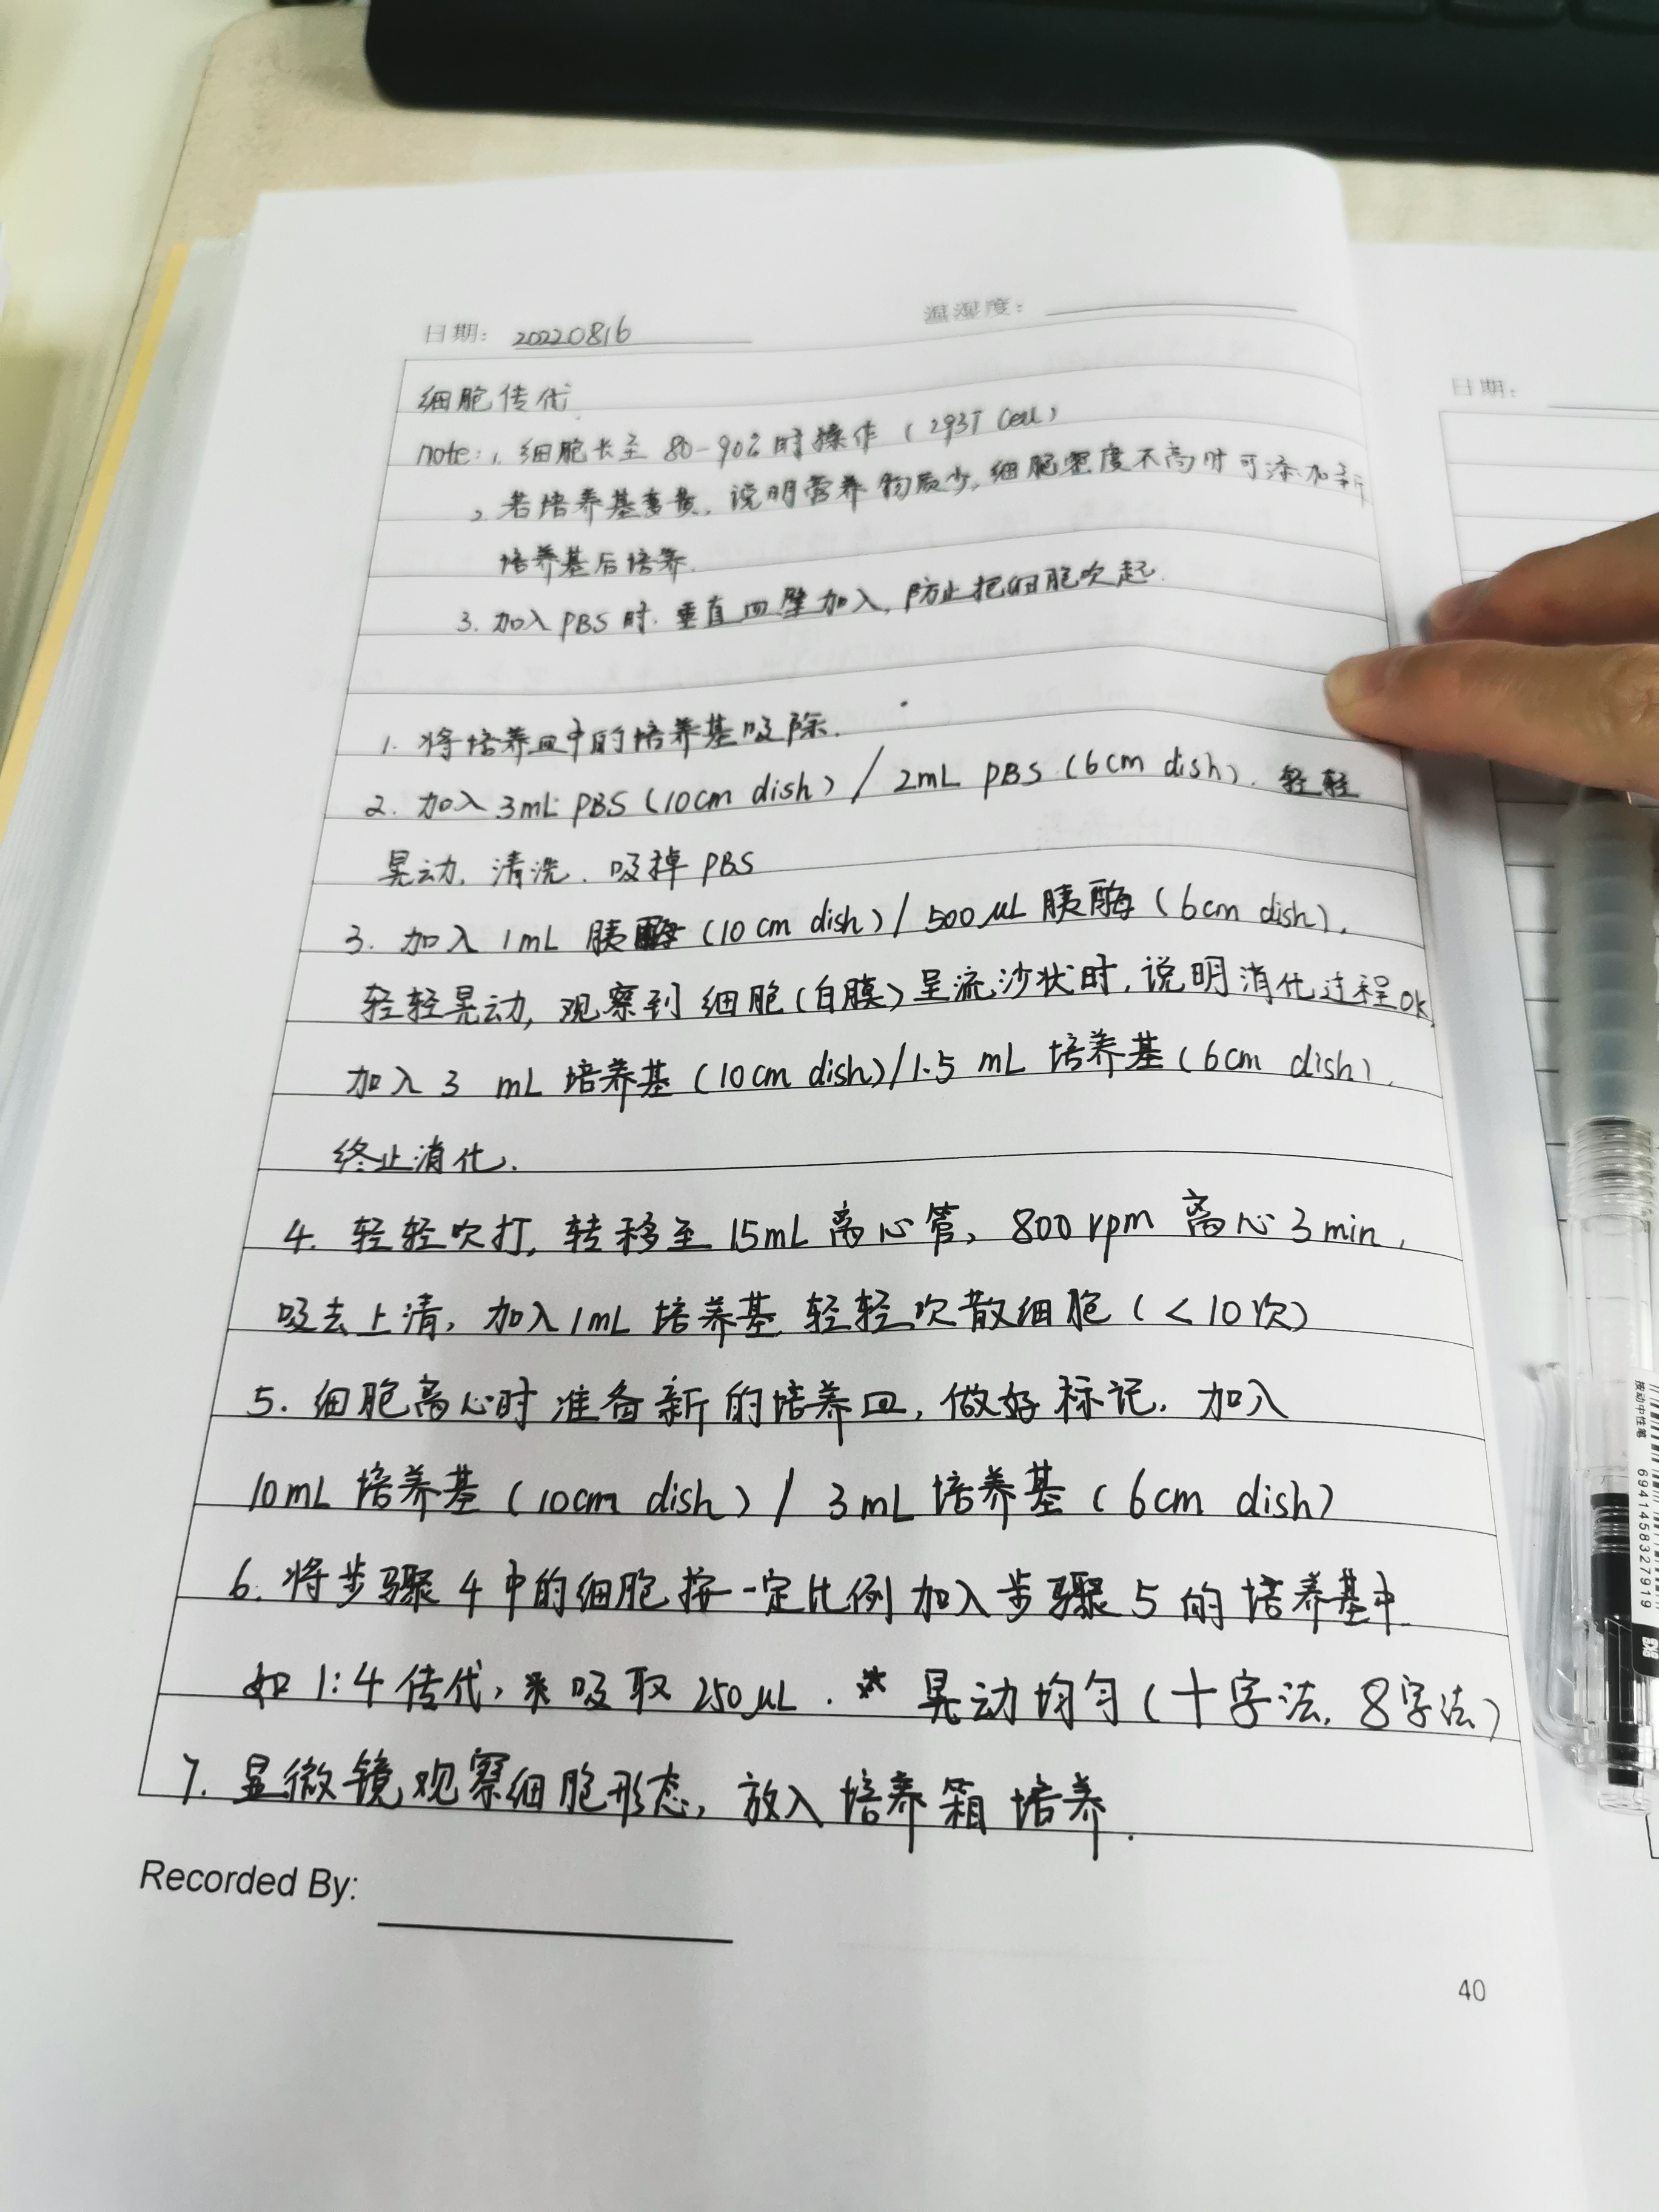 日期: 20220816
温湿度:
细胞传代
note: 1. 细胞长至 80-90% 时操作 (293T Cell)
2. 若培养基变黄, 说明营养物质少, 细胞密度不高时可添加新
培养基后培养.
3. 加入 PBS 时. 垂直皿壁加入, 防止把细胞吹起.
1. 将培养皿中的培养基吸除.
2. 加入 3mL PBS (10cm dish) / 2mL PBS (6cm dish). 轻轻
晃动, 清洗. 吸掉 PBS
3. 加入 1mL 胰酶 (10 cm dish) / 500 μL 胰酶 (6cm dish).
轻轻晃动, 观察到 细胞 (白膜) 呈流沙状时, 说明消化过程OK,
加入 3 mL 培养基 (10cm dish) / 1.5 mL 培养基 (6cm dish),
终止消化.
4. 轻轻吹打, 转移至 15mL 离心管, 800 rpm 离心 3 min,
吸去上清, 加入 1mL 培养基 轻轻吹散细胞 (< 10 次)
5. 细胞离心时 准备新的培养皿, 做好标记, 加入
10mL 培养基 (10cm dish) / 3mL 培养基 (6cm dish)
6. 将步骤 4 中的细胞按一定比例 加入步骤 5 的培养基中
如 1:4 传代, 吸取 250 μL. 晃动均匀 (十字法, 8字法)
7. 显微镜观察细胞形态, 放入培养箱培养.
Recorded By:
40
日期:
按动中性笔 6941458327919